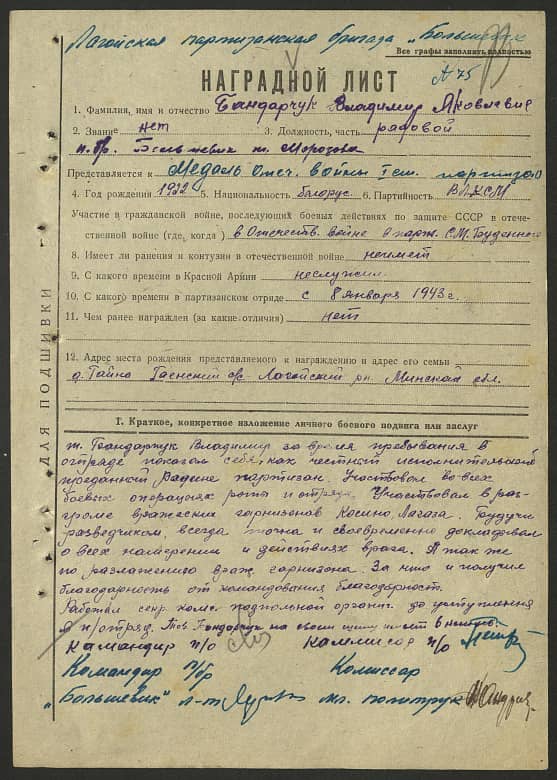 Лагойская партизанская бригада „Большевик"
Все графы заполнять полностью
№ 75
НАГРАДНОЙ ЛИСТ
1. Фамилия, имя и отчество Бандарчук Владимир Яковлевич
2. Звание нет 3. Должность, часть рядовой
п. бр. Большевик им. Морозова
Представляется к Медаль Отеч. войны I ст. партизану
4. Год рождения 1922 5. Национальность белорус. 6. Партийность ВЛКСМ
Участие в гражданской войне, последующих боевых действиях по защите СССР в отече-
ственной войне (где, когда) в Отечеств. войне в парт. С.М. Буденного
8. Имеет ли ранения и контузии в отечественной войне неимеет
9. С какого времени в Красной Армии неслужил
10. С какого времени в партизанском отряде с 8 января 1943 г.
11. Чем ранее награжден (за какие отличия) нет
12. Адрес места рождения представляемого к награждению и адрес его семьи
д. Гайна Гаенский с/с Лагойский рн. Минская обл.
ДЛЯ ПОДШИВКИ
I. Краткое, конкретное изложение личного боевого подвига или заслуг
т. Бандарчук Владимир за время пребывания в
отряде показал себя, как честный исполнительный
преданный Радине партизан. Участвовал во всех
боевых операциях роты и отряда. Участвовал в раз-
громе вражеских гарнизонов Косино, Лагаза. Будучи
разведчиком, всегда точно и своевременно докладывал
о всех намерении и действиях врага. А так же
по разлажению враж. гарнизона. За что и получил
благодарность от командования благодарность.
Работал секр. комс. подпольной органи. до уступления
в п/отряд. Тов. Бандарчук на своем щиту имеет 6
Камандир п/о Каммисар п/о
Командир п/бр Комиссар
„Большевик" л-т мл. политрук